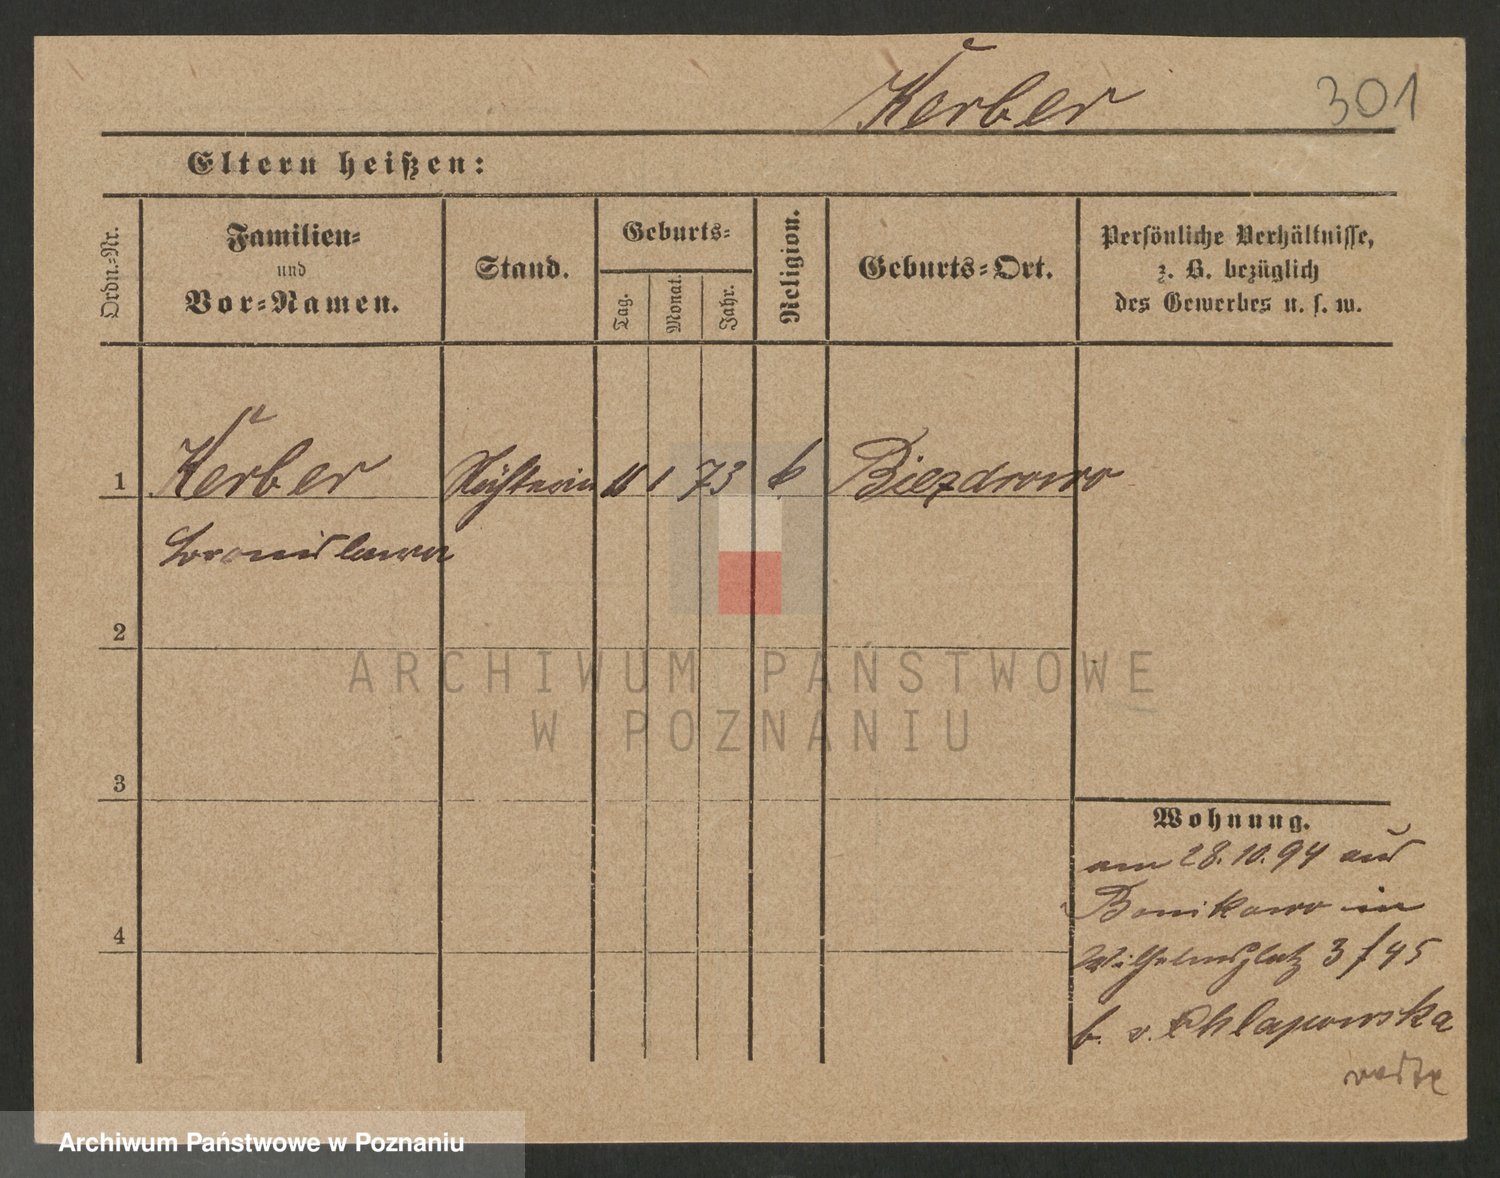 Kerber 301
Eltern heißen:
Ordn.-Nr.
Familien-
und
Vor-Namen.
Stand.
Geburts-
Tag.
Monat.
Jahr.
Religion.
Geburts-Ort.
Persönliche Verhältnisse,
z. B. bezüglich
des Gewerbes u. s. w.
1 Kerber 1 73 k Biezdrowo
Bronislawa
2
ARCHIWUM PAŃSTWOWE
W POZNANIU
3
Wohnung.
am 28.10.94 aus
Bonikowo in
4
Wilhelmsplatz 3 / 45
b. v. Chlapowska
Archiwum Państwowe w Poznaniu